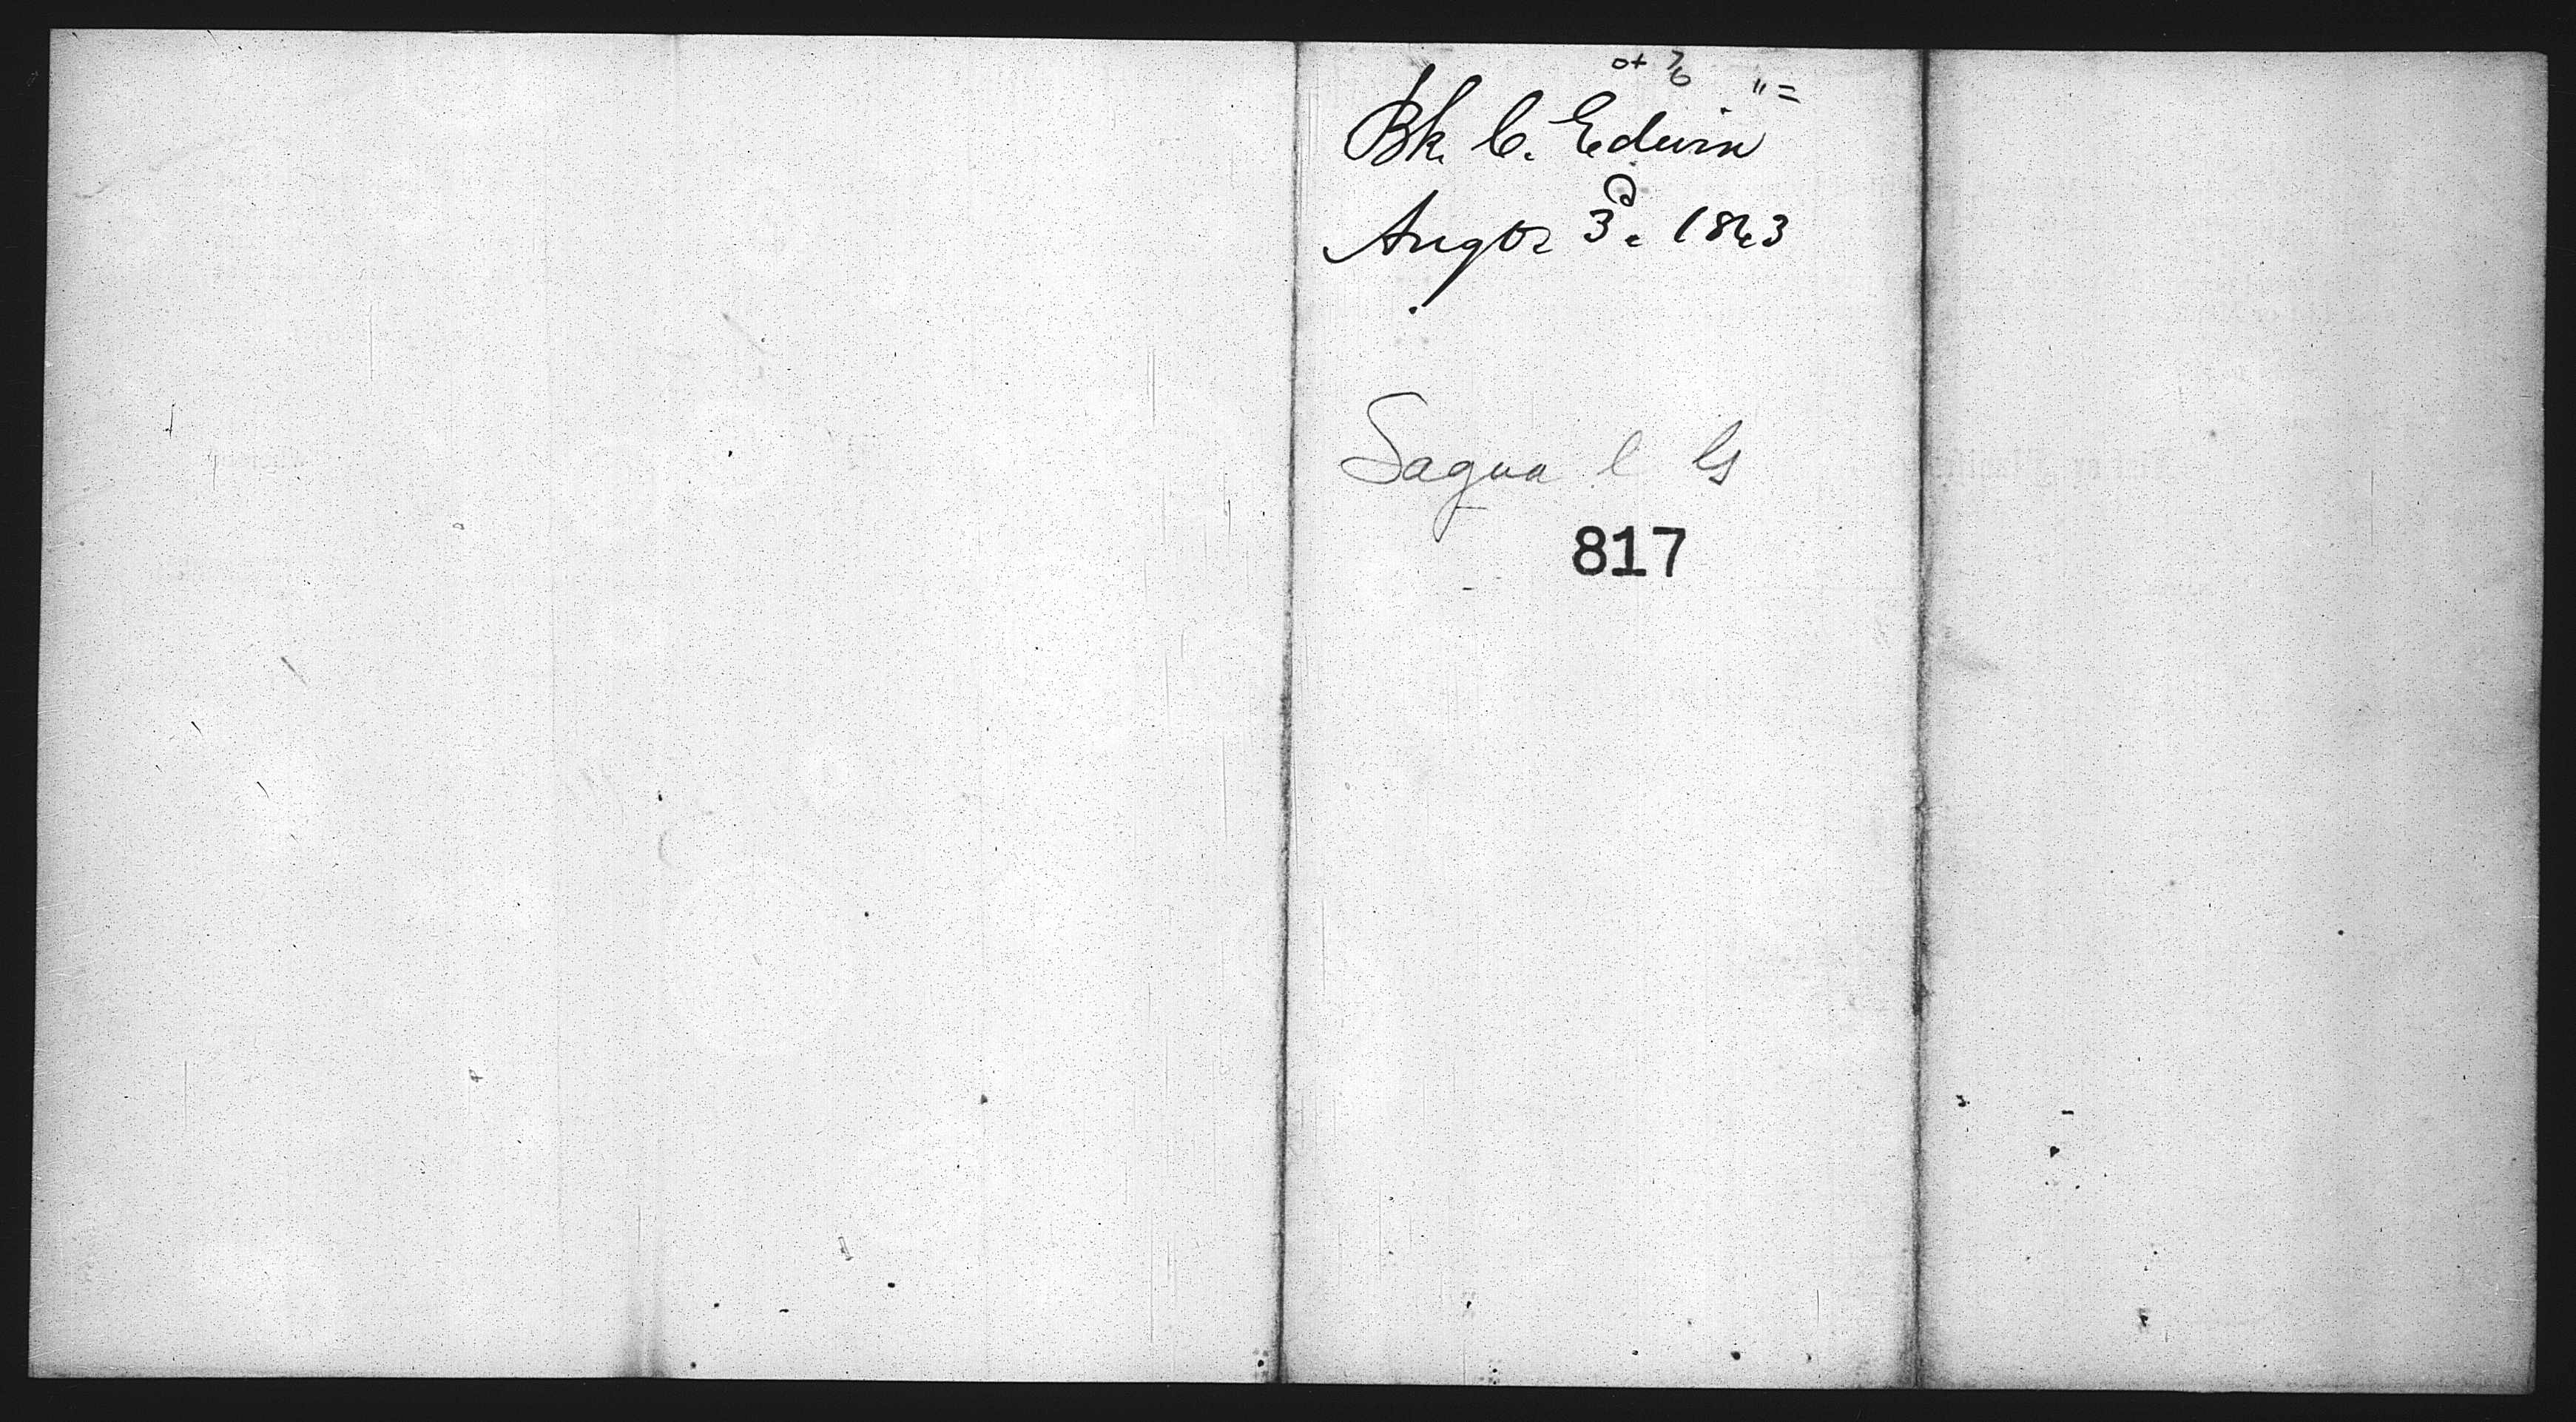 Bk. C. Edwin
Augt 3d. 1863
Sagua
817